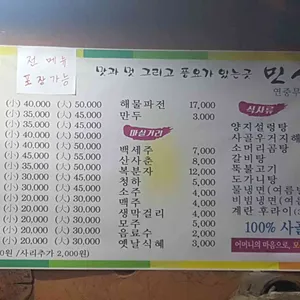 전 메뉴
포장가능
맛과 멋 그리고 풍요가 있는곳
연중무
(小) 40.000 (大) 50.000
(小) 35.000 (大) 45.000
(小) 35.000 (大) 45.000
(小) 40.000 (大) 50.000
(小) 40.000 (大) 50.000
(小) 40.000 (大) 50.000
(小) 20.000 (大) 30.000
(小) 20.000 (大) 30.000
(小) 20.000 (大) 30.000
(小) 20.000 (大) 30.000
(小) 20.000 (大) 30.000
0원 / 사리추가 2,000원)
해물파전 17,000
만두 3.000
마실거리
백세주 7,000
산사춘 8,000
복분자 12,000
청하 5,000
소주 4,000
맥주 4,000
생막걸리 4,000
모주 5,000
음료수 2,000
옛날식혜 3,000
식사류
양지설렁탕
사골우거지해
소머리곰탕
갈비탕
뚝불고기
도가니탕
물냉면(여름
비빔냉면(여름
계란 후라이(
100% 사골
어머니의 마음으로, 모